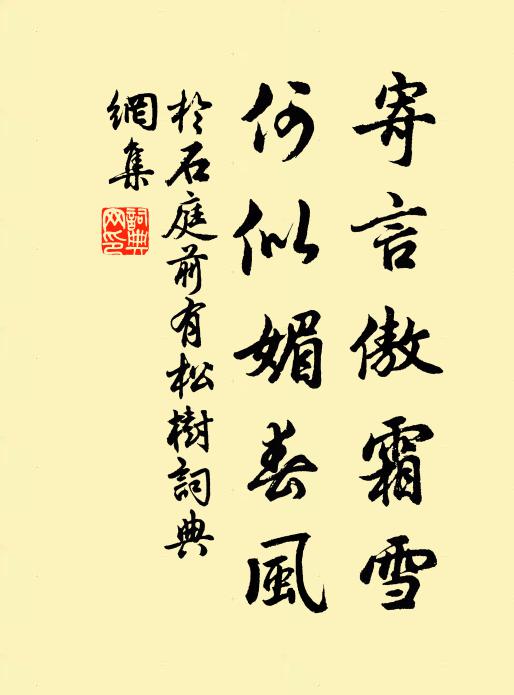 寄言傲霜雪
何似媚春風
於石庭前有松樹詞典
網集
詞典
网印